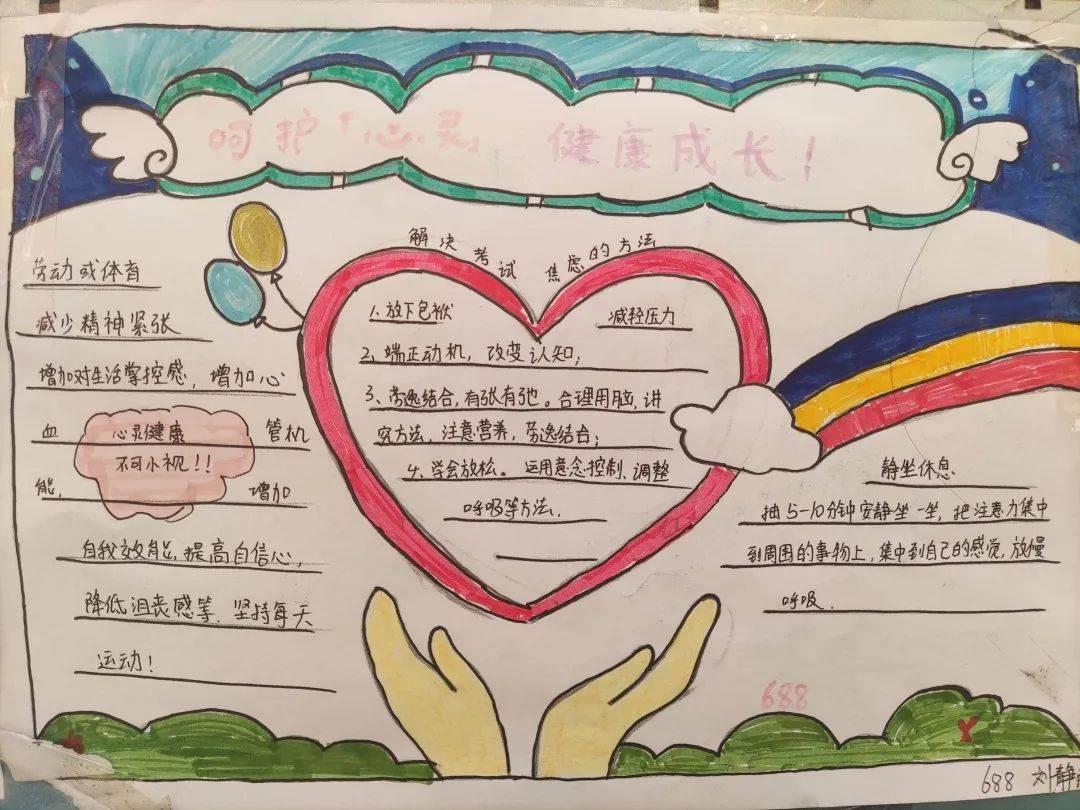 呵护「心灵」 健康成长！
劳动或体育
减少精神紧张
增加对生活掌控感，增加心
血 管机
能， 增加
自我效能，提高自信心，
降低沮丧感等．坚持每天
运动！
心灵健康
不可小视！！
解决考试焦虑的方法
1、放下包袱 减轻压力
2、端正动机，改变认知；
3、劳逸结合，有张有弛。合理用脑，讲
究方法，注意营养，劳逸结合；
4、学会放松。运用意念控制、调整
呼吸等方法．
静坐休息
抽5-10分钟安静坐一坐，把注意力集中
到周围的事物上，集中到自己的感觉，放慢
呼吸．
688
688 刘静